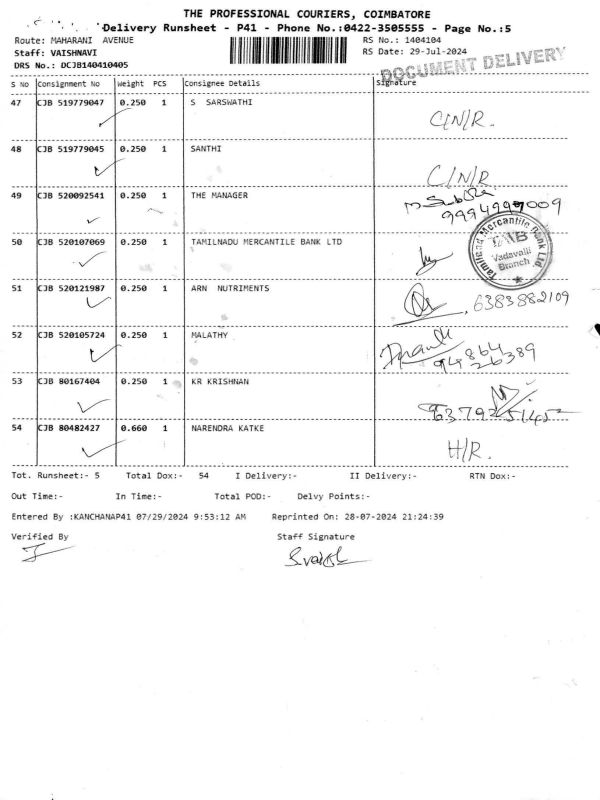 THE PROFESSIONAL COURIERS, COIMBATORE
Delivery Runsheet - P41 - Phone No.:0422-3505555 - Page No.:5
Route: MAHARANI AVENUE
RS No.: 1404104
Staff: VAISHNAVI
RS Date: 29-Jul-2024
DRS No.: DCJB140410405
DOCUMENT DELIVERY
S No Consignment No Weight PCS Consignee Details Signature
47 CJB 519779047 0.250 1 S SARSWATHI C/N/R.
48 CJB 519779045 0.250 1 SANTHI C/N/R
49 CJB 520092541 0.250 1 THE MANAGER
9994999009
50 CJB 520107069 0.250 1 TAMILNADU MERCANTILE BANK LTD
Tamilnad Mercantile Bank Ltd
TMB
Vadavalli
Branch
51 CJB 520121987 0.250 1 ARN NUTRIMENTS 6383882109
52 CJB 520105724 0.250 1 MALATHY
94864
26389
53 CJB 80167404 0.250 1 KR KRISHNAN
54 CJB 80482427 0.660 1 NARENDRA KATKE H/R.
Tot. Runsheet:- 5 Total Dox:- 54 I Delivery:- II Delivery:- RTN Dox:-
Out Time:- In Time:- Total POD:- Delvy Points:-
Entered By :KANCHANAP41 07/29/2024 9:53:12 AM Reprinted On: 28-07-2024 21:24:39
Verified By Staff Signature